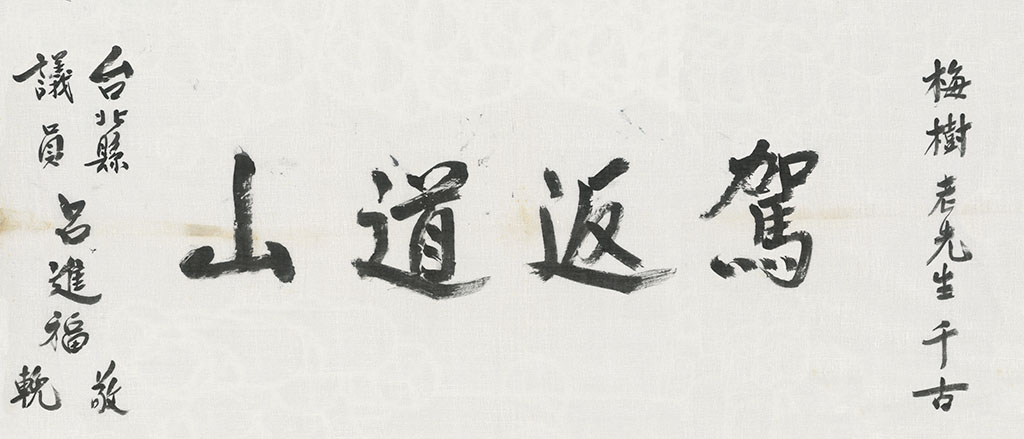 梅樹老先生千古
駕返道山
台北縣
議員
呂進福
敬輓